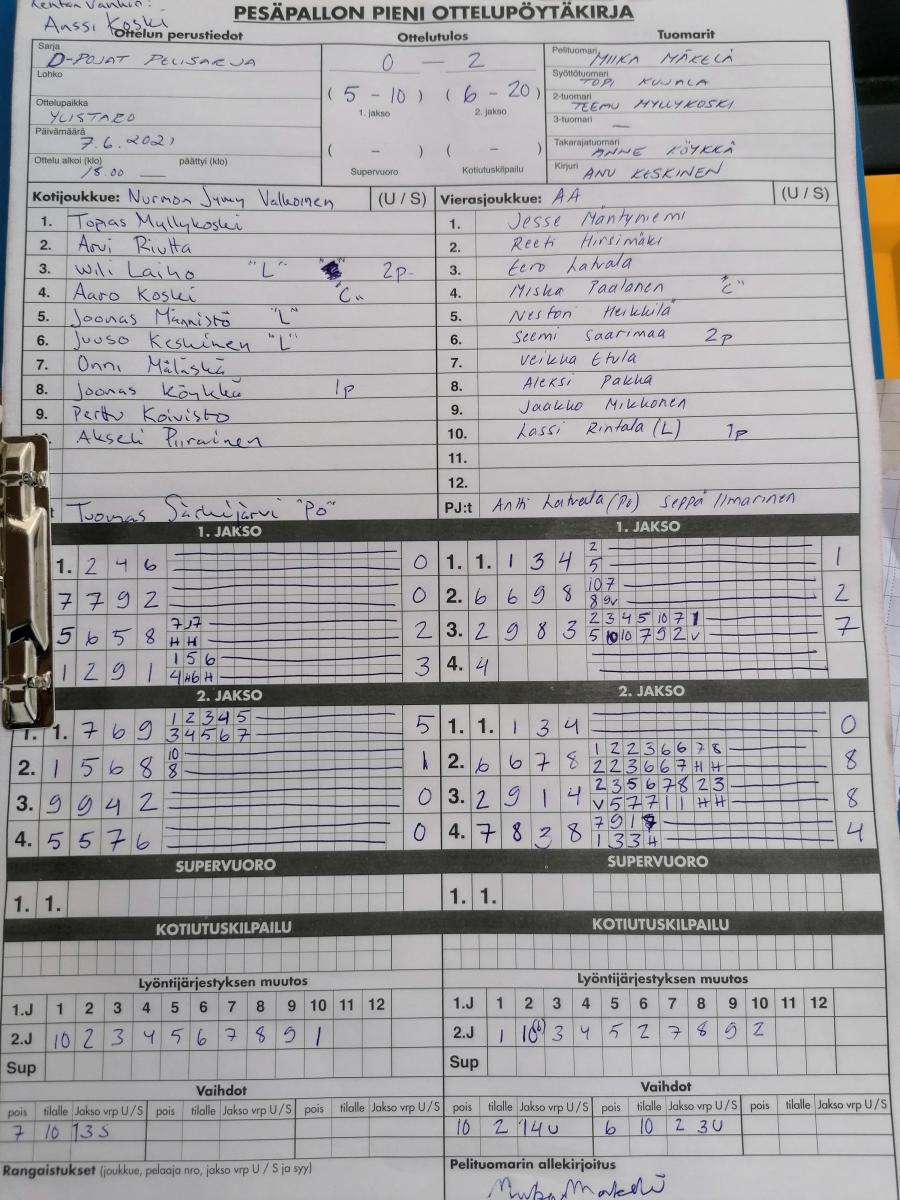 Kentän vanhin:
Anssi Koski
PESÄPALLON PIENI OTTELUPÖYTÄKIRJA
Ottelun perustiedot
Sarja
D-POJAT PELISARJA
Lohko
Ottelupaikka
YLISTARO
Päivämäärä
7.6.2021
Ottelu alkoi (klo) päättyi (klo)
18.00 —
Ottelutulos
0 — 2
(5 - 10) (6 - 20)
1. jakso 2. jakso
( - ) ( - )
Supervuoro Kotiutuskilpailu
Tuomarit
Pelituomari MIIKA MÄKELÄ
Syöttötuomari TOPI KUJALA
2-tuomari TEEMU MYLLYKOSKI
3-tuomari —
Takarajatuomari ANNE KÖYKKÄ
Kirjuri ANU KESKINEN
Kotijoukkue: Nurmon Jymy Valkoinen (U / S)
1. Topias Myllykoski
2. Arvi Riutta
3. Wili Laiho "L" 2p
4. Aaro Koski "C"
5. Joonas Männistö "L"
6. Juuso Keskinen "L"
7. Onni Mäläskä
8. Joonas Köykkä 1p
9. Perttu Koivisto
Akseli Piirainen
Tuomas Särkijärvi "PO"
Vierasjoukkue: AA (U / S)
1. Jesse Mäntyniemi
2. Reeti Hirsimäki
3. Eero Latvala
4. Miska Paalanen "C"
5. Neston Heikkilä
6. Seemi Saarimaa 2p
7. Veikka Etula
8. Aleksi Pakka
9. Jaakko Mikkonen
10. Lassi Rintala (L) 1p
11.
12.
PJ:t Antti Latvala (Po) Seppä Ilmarinen
1. JAKSO
1. 2 4 6 0
7 7 9 2 0
5 6 5 8 2
H H
1 2 9 1 1 5 6 3
2. JAKSO
1. 1. 7 6 9 1 2 3 4 5 5
3 4 5 6 7
2. 1 5 6 8 10 1
8
3. 9 9 4 2 0
4. 5 5 7 6 0
SUPERVUORO
1. 1.
KOTIUTUSKILPAILU
Lyöntijärjestyksen muutos
1.J 1 2 3 4 5 6 7 8 9 10 11 12
2.J 10 2 3 4 5 6 7 8 9 1
Sup
Vaihdot
pois tilalle Jakso vrp U / S pois tilalle Jakso vrp U / S pois tilalle Jakso vrp U / S
7 10 13 S
Rangaistukset (joukkue, pelaaja nro, jakso vrp U / S ja syy)
1. JAKSO
1. 1. 1 3 4 2 1
5
2. 6 6 9 8 10 7 2
8 9v
3. 2 9 8 3 2 3 4 5 10 7 1 7
5 10 10 7 9 2 v
4. 4
2. JAKSO
1. 1. 1 3 4 0
2. 6 6 7 8 1 2 2 3 6 6 7 8 8
2 2 3 6 6 7 H H
3. 2 9 1 4 2 3 5 6 7 8 2 3 8
V 5 7 7 1 1 H H
4. 7 8 3 8 7 9 1 8 4
1 3 3 H
SUPERVUORO
1. 1.
KOTIUTUSKILPAILU
Lyöntijärjestyksen muutos
1.J 1 2 3 4 5 6 7 8 9 10 11 12
2.J 1 10(6) 3 4 5 2 7 8 9 2
Sup
Vaihdot
pois tilalle Jakso vrp U / S pois tilalle Jakso vrp U / S pois tilalle Jakso vrp U / S
10 2 14U 6 10 2 3U
Pelituomarin allekirjoitus